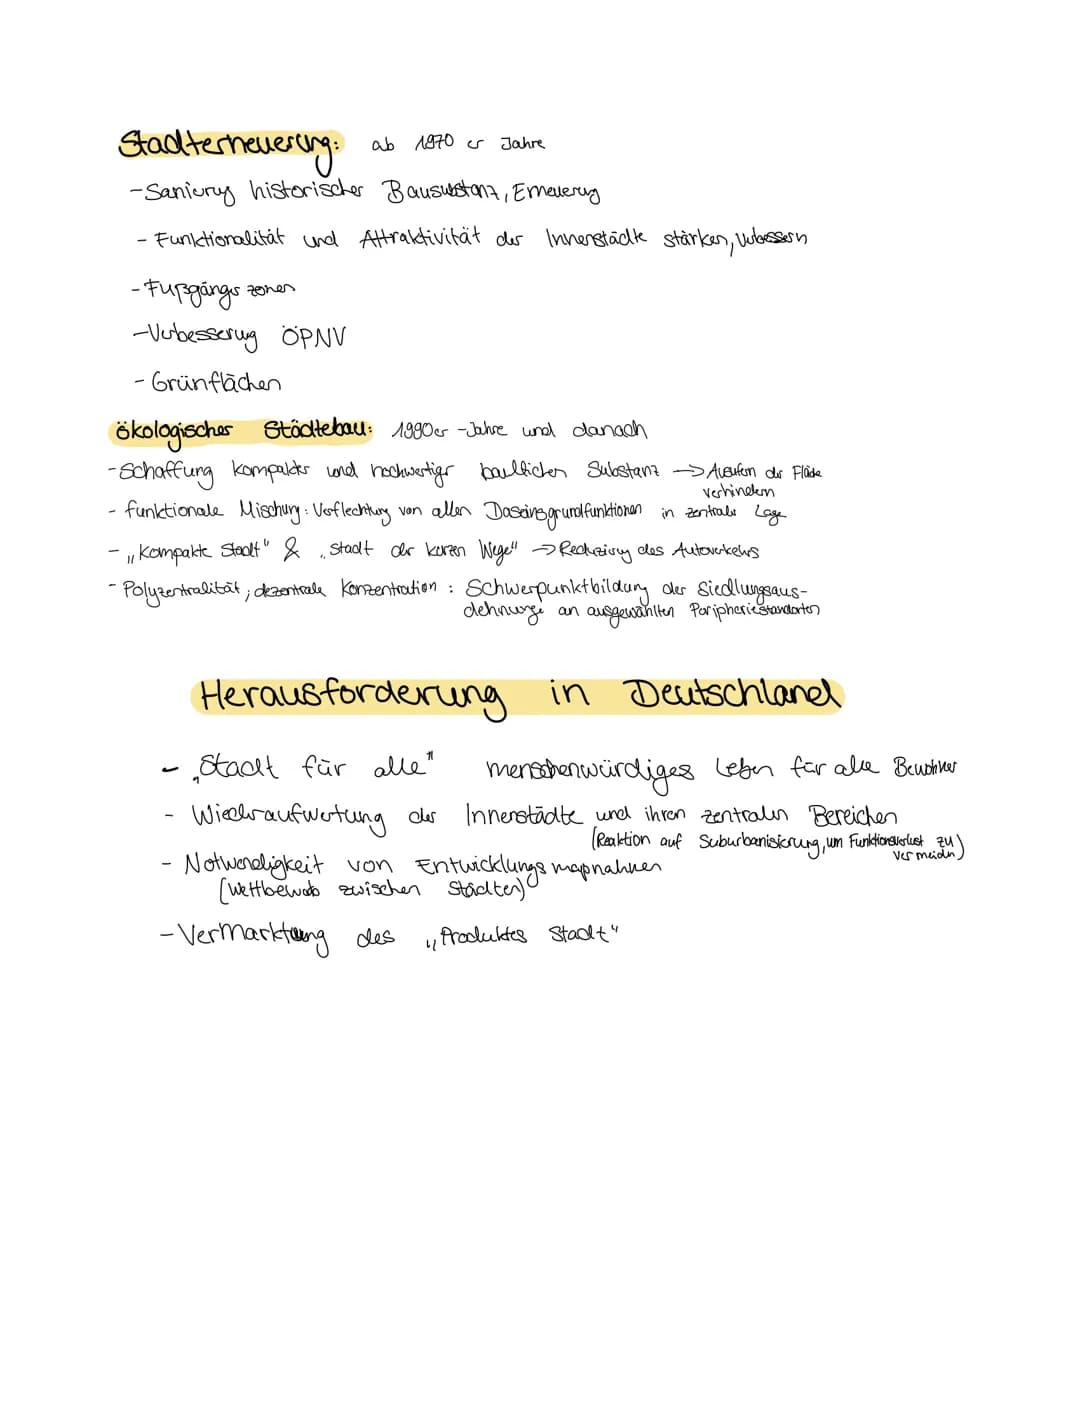 Stadterneuerung: ab 1970er Jahre
- Sanierung historischer Bausubstanz, Erneuerung
- Funktionalität und Attraktivität der Innenstädte stärken, verbessern
- Fußgängerzonen
- Verbesserung ÖPNV
- Grünflächen
ökologischer Städtebau: 1990er-Jahre und danach
- Schaffung kompakter und hochwertiger baulichen Substanz → Ausufern der Fläche
verhindern
- funktionale Mischung: Verflechtung von allen Daseinsgrundfunktionen in zentraler Lage
- „Kompakte Stadt" & „Stadt der kurzen Wege" → Reduzierung des Autoverkehrs
- Polyzentralität; dezentrale Konzentration : Schwerpunktbildung der Siedlungsaus-
dehnung an ausgewählten Peripheriestandorten
Herausforderung in Deutschland
- „Stadt für alle" menschenwürdiges Leben für alle Bewohner
- Wiederaufwertung der Innerstädte und ihren zentralen Bereichen
(Reaktion auf Suburbanisierung, um Funktionsverlust zu
vermeiden)
- Notwendigkeit von Entwicklungsmaßnahmen
(Wettbewerb zwischen Städten)
- Vermarktung des „Produktes Stadt"